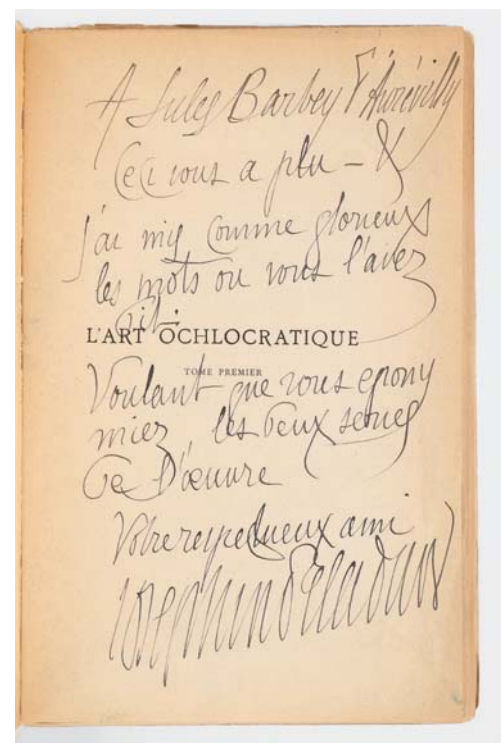 A Jules Barbey d'Aurévilly
Ceci vous a plu – &
j'ai mis comme glorieux
les mots où vous l'avez
dit.
L'ART OCHLOCRATIQUE
TOME PREMIER
Voulant que vous épony
miez les deux séries
de l'œuvre
Votre respectueux ami
Joséphin Péladan